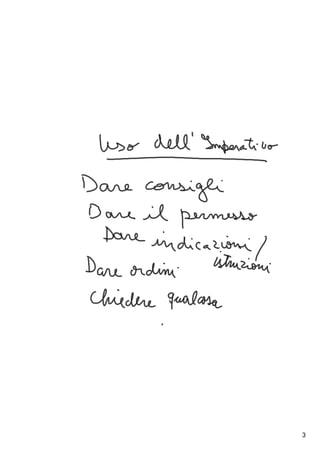 Uso dell'Imperativo
Dare consigli
Dare il permesso
Dare indicazioni /
istruzioni
Dare ordini
Chiedere qualcosa
3